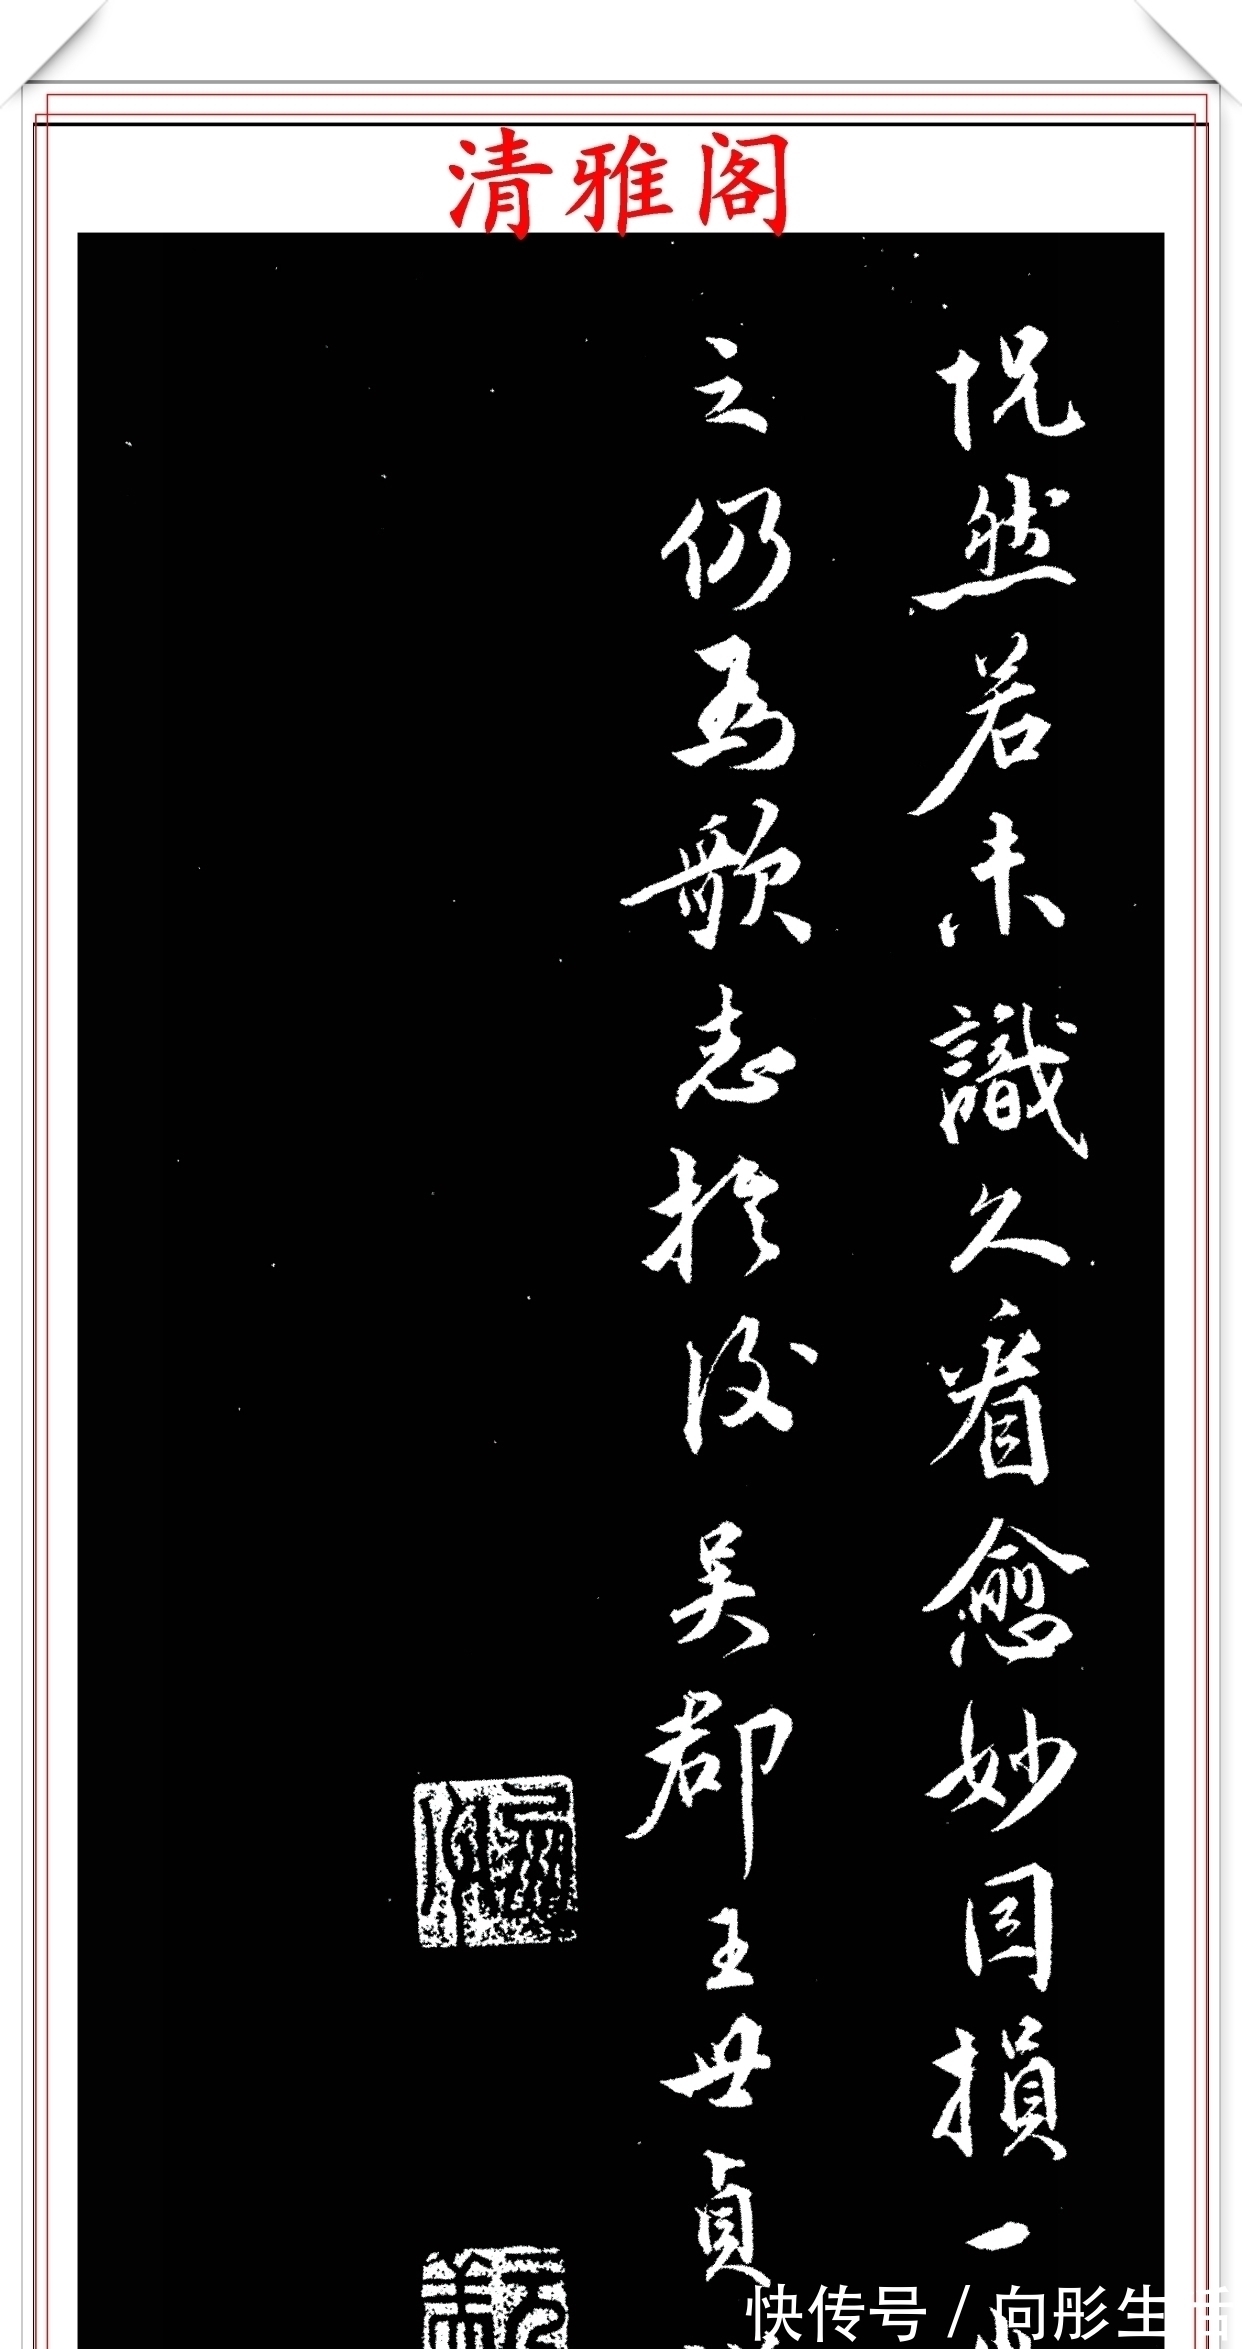 清雅阁
怳然若未識久看愈妙因損一
之仍为歌志於後吴郡王世貞
快传号/向彤生活